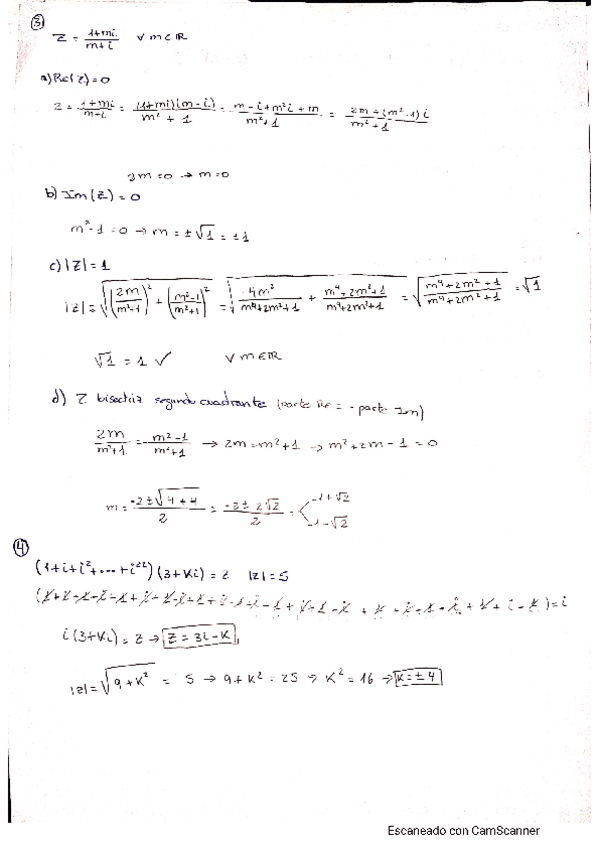 ③
Z = (1+mi)/(m+i) ∀ m ∈ ℝ
a) Re(z) = 0
z = (1+mi)/(m+i) = (1+mi)(m-i)/(m²+1) = (m-i+m²i+m)/(m²+1) = (2m+(m²-1)i)/(m²+1)
2m = 0 → m = 0
b) Im(z) = 0
m²-1 = 0 → m = ±√1 = ±1
c) |z| = 1
|z| = √((2m/(m²+1))² + ((m²-1)/(m²+1))²) = √(4m²/(m⁴+2m²+1) + (m⁴-2m²+1)/(m⁴+2m²+1)) = √((m⁴+2m²+1)/(m⁴+2m²+1)) = √1
√1 = 1 ✓ ∀ m ∈ ℝ
d) Z bisectriz segundo cuadrante (parte Re = - parte Im)
2m/(m²+1) = -(m²-1)/(m²+1) → 2m = -m²+1 → m²+2m-1 = 0
m = (-2±√(4+4))/2 = (-2±2√2)/2 = -1+√2
-1-√2
④
(1+i+i²+...+i²²)(3+Ki) = z |z| = 5
) = i
i(3+Ki) = z → z = 3i-K
|z| = √(9+K²) = 5 → 9+K² = 25 → K² = 16 → K = ±4
Escaneado con CamScanner